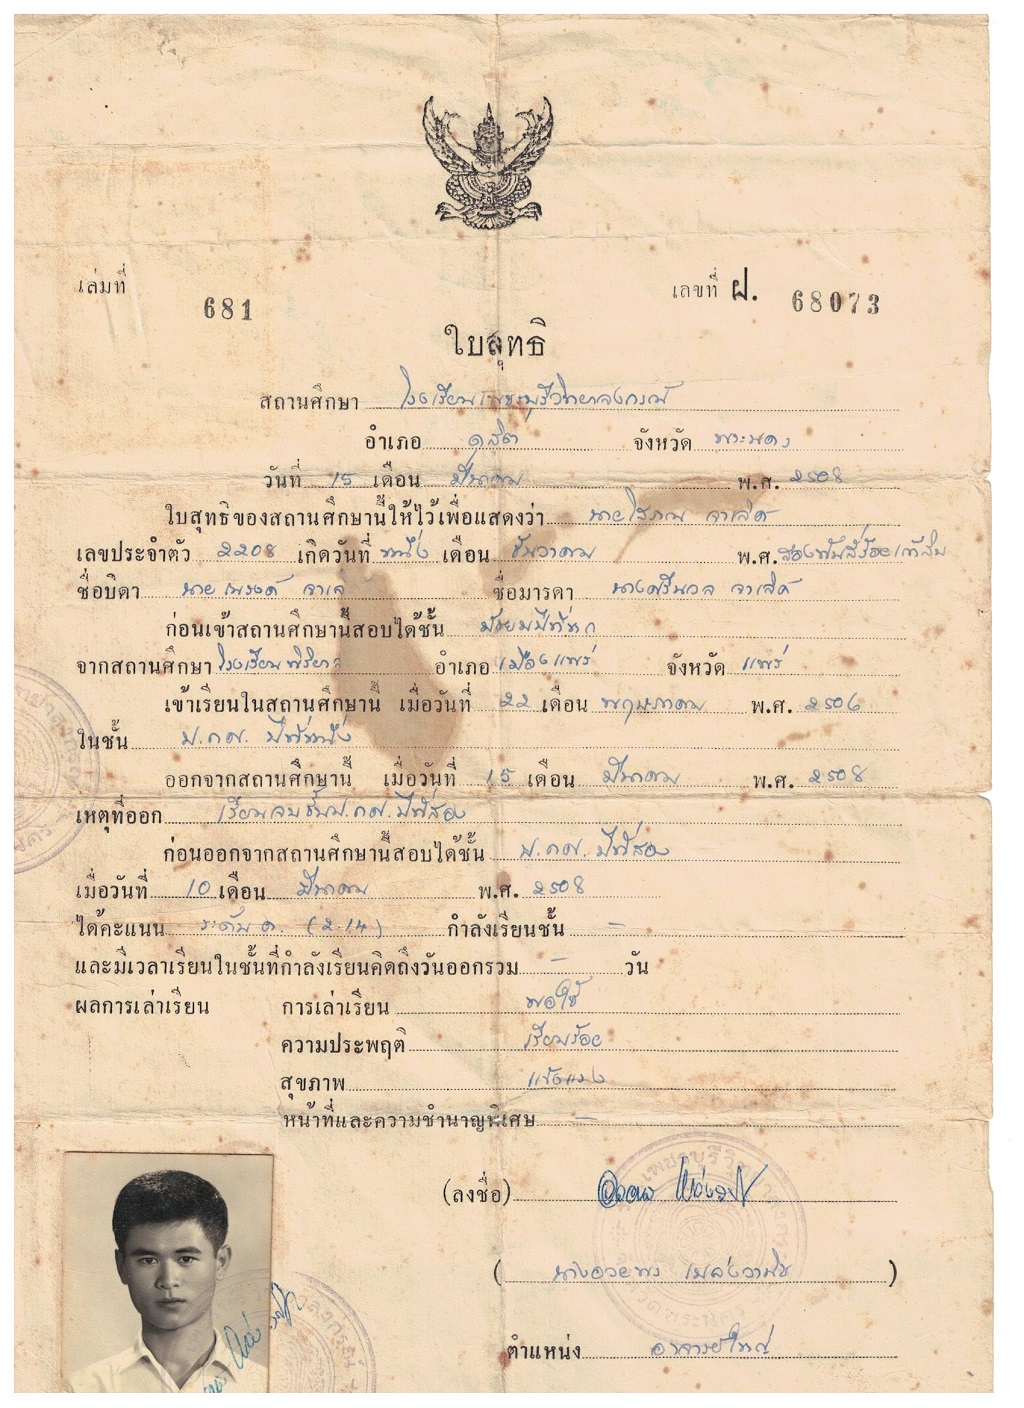 เล่มที่ 681 เลขที่ ฝ. 68073
ใบสุทธิ
สถานศึกษา โรงเรียนเพชรบุรีวิทยาลงกรณ์
อำเภอ ดุสิต จังหวัด พระนคร
วันที่ 15 เดือน มีนาคม พ.ศ. 2508
ใบสุทธิของสถานศึกษานี้ให้ไว้เพื่อแสดงว่า นายโสภณ จาเลิศ
เลขประจำตัว 2208 เกิดวันที่ หนึ่ง เดือน ธันวาคม พ.ศ. สองพันสี่ร้อยเก้าสิบ
ชื่อบิดา นาย ณรงค์ ชื่อมารดา นางศรีนวล จาเลิศ
ก่อนเข้าสถานศึกษานี้สอบได้ชั้น มัธยมปีที่หก
จากสถานศึกษา โรงเรียน พิริยาลัย อำเภอ เมืองแพร่ จังหวัด แพร่
เข้าเรียนในสถานศึกษานี้ เมื่อวันที่ 22 เดือน พฤษภาคม พ.ศ. 2506
ในชั้น ป.กศ. ปีที่หนึ่ง
ออกจากสถานศึกษานี้ เมื่อวันที่ 15 เดือน มีนาคม พ.ศ. 2508
เหตุที่ออก เรียนจบชั้นป.กศ.ปีที่สอง
ก่อนออกจากสถานศึกษานี้สอบได้ชั้น ป.กศ. ปีที่สอง
เมื่อวันที่ 10 เดือน มีนาคม พ.ศ. 2508
ได้คะแนน ระดับ ค. (2.14) กำลังเรียนชั้น –
และมีเวลาเรียนในชั้นที่กำลังเรียนคิดถึงวันออกรวม – วัน
ผลการเล่าเรียน การเล่าเรียน พอใช้
ความประพฤติ เรียบร้อย
สุขภาพ แข็งแรง
หน้าที่และความชำนาญพิเศษ –
(ลงชื่อ)
( นางอวยพร )
ตำแหน่ง อาจารย์ใหญ่